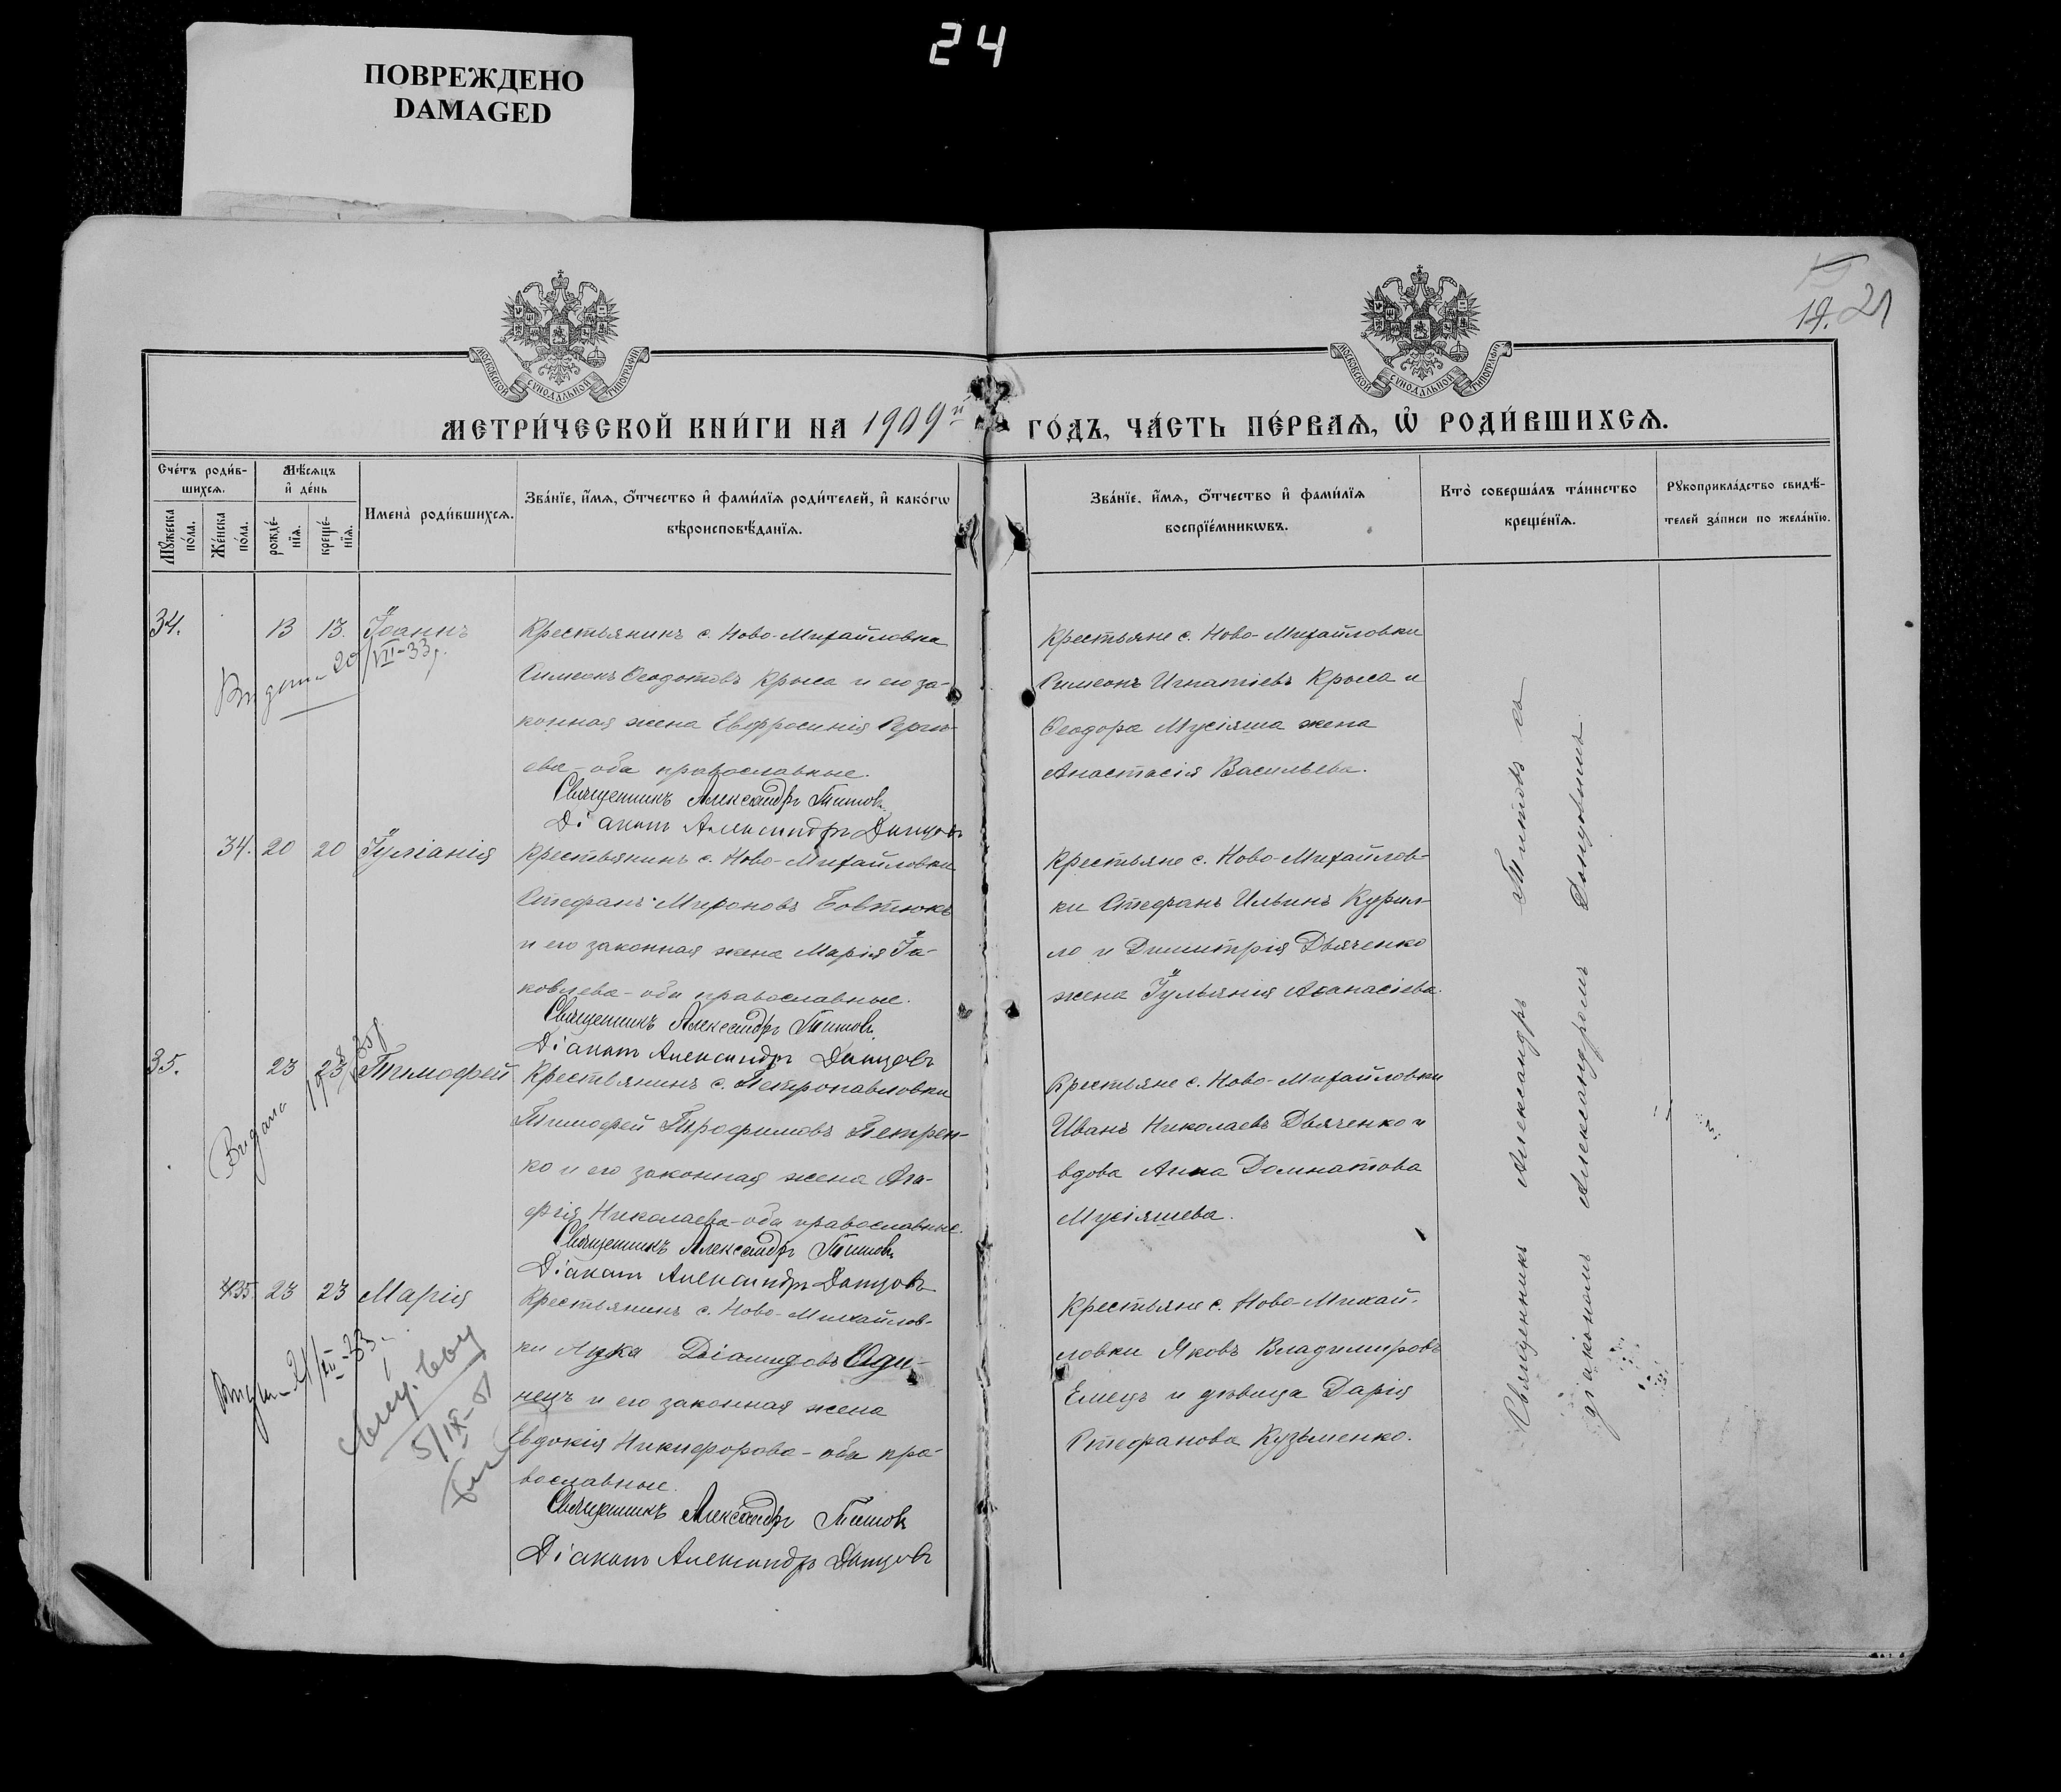 24
ПОВРЕЖДЕНО
DAMAGED
19. 21
МОСКОВСКОЙ СѴНОДАЛЬНОЙ ТИПОГРАФІИ
МОСКОВСКОЙ СѴНОДАЛЬНОЙ ТИПОГРАФІИ
МЕТРИ́ЧЕСКОЙ КНИ́ГИ НА 1909й ГО́ДЪ, ЧА́СТЬ ПЕ́РВАѦ, Ѡ҆ РОДИ́ВШИХСѦ.
Сче́тъ роди́в-
шихсѧ.
Мꙋ́жеска по́ла.
Же́нска по́ла.
Мѣ́сѧцъ
и҆ де́нь
рожде́-
нїѧ.
креще́-
нїѧ.
Имена̀ роди́вшихсѧ.
Зва́нїе, и҆́мѧ, ѻ҆́тчество и҆ фами́лїѧ роди́телей, и҆ како́гѡ
вѣроисповѣ́данїѧ.
Зва́нїе, и҆́мѧ, ѻ҆́тчество и҆ фами́лїѧ
воспрїе́мникѡвъ.
Кто̀ соверша́лъ та́инство
креще́нїѧ.
Рꙋкоприкла́дство свидѣ́-
телей за́писи по жела́нїю.
34. 13 13. Іоаннъ
20/VII-33
Крестьянинъ с. Ново-Михайловка
Симеонъ Ѳеодотовъ Крыса и его за-
конная жена Евфросинія Серги-
ева - оба православные.
Священникъ Александръ Титовъ
Діаконъ Александръ Данцовъ
Крестьяне с. Ново-Михайловки
Симеонъ Игнатіевъ Крыса и
Ѳеодора Мусіяша жена
Анастасія Васильева.
34. 20 20 Іуліанія
Крестьянинъ с. Ново-Михайловки
Стефанъ Мироновъ Бовтюкъ
и его законная жена Марія Іа-
ковлева - оба православные.
Священникъ Александръ Титовъ
Діаконъ Александръ Данцовъ
Крестьяне с. Ново-Михайлов-
ки Стефанъ Ильинъ Курил-
ло и Димитрія Дьяченко
жена Іульянія Аѳанасіева.
35. 23 23 Тимофей
Видано
Крестьянинъ с. Петропавловки
Тимофей Трофимовъ Петрен-
ко и его законная жена Ага-
фія Николаева - оба православные.
Священникъ Александръ Титовъ
Діаконъ Александръ Данцовъ
Крестьяне с. Ново-Михайловки
Иванъ Николаевъ Дьяченко и
вдова Анна Домнатова
Мусіяшева.
35. 23 23 Марія
5/IX-51
Крестьянинъ с. Ново-Михайлов-
ки Лука Діамидовъ Оди-
нецъ и его законная жена
Евдокія Никифорова - оба пра-
вославные.
Священникъ Александръ Титовъ
Діаконъ Александръ Данцовъ
Крестьяне с. Ново-Михай-
ловки Яковъ Владимировъ
Емецъ и дѣвица Дарія
Стефанова Кузьменко.
Священникъ Александръ Титовъ съ
діакономъ Александромъ Данцовымъ.